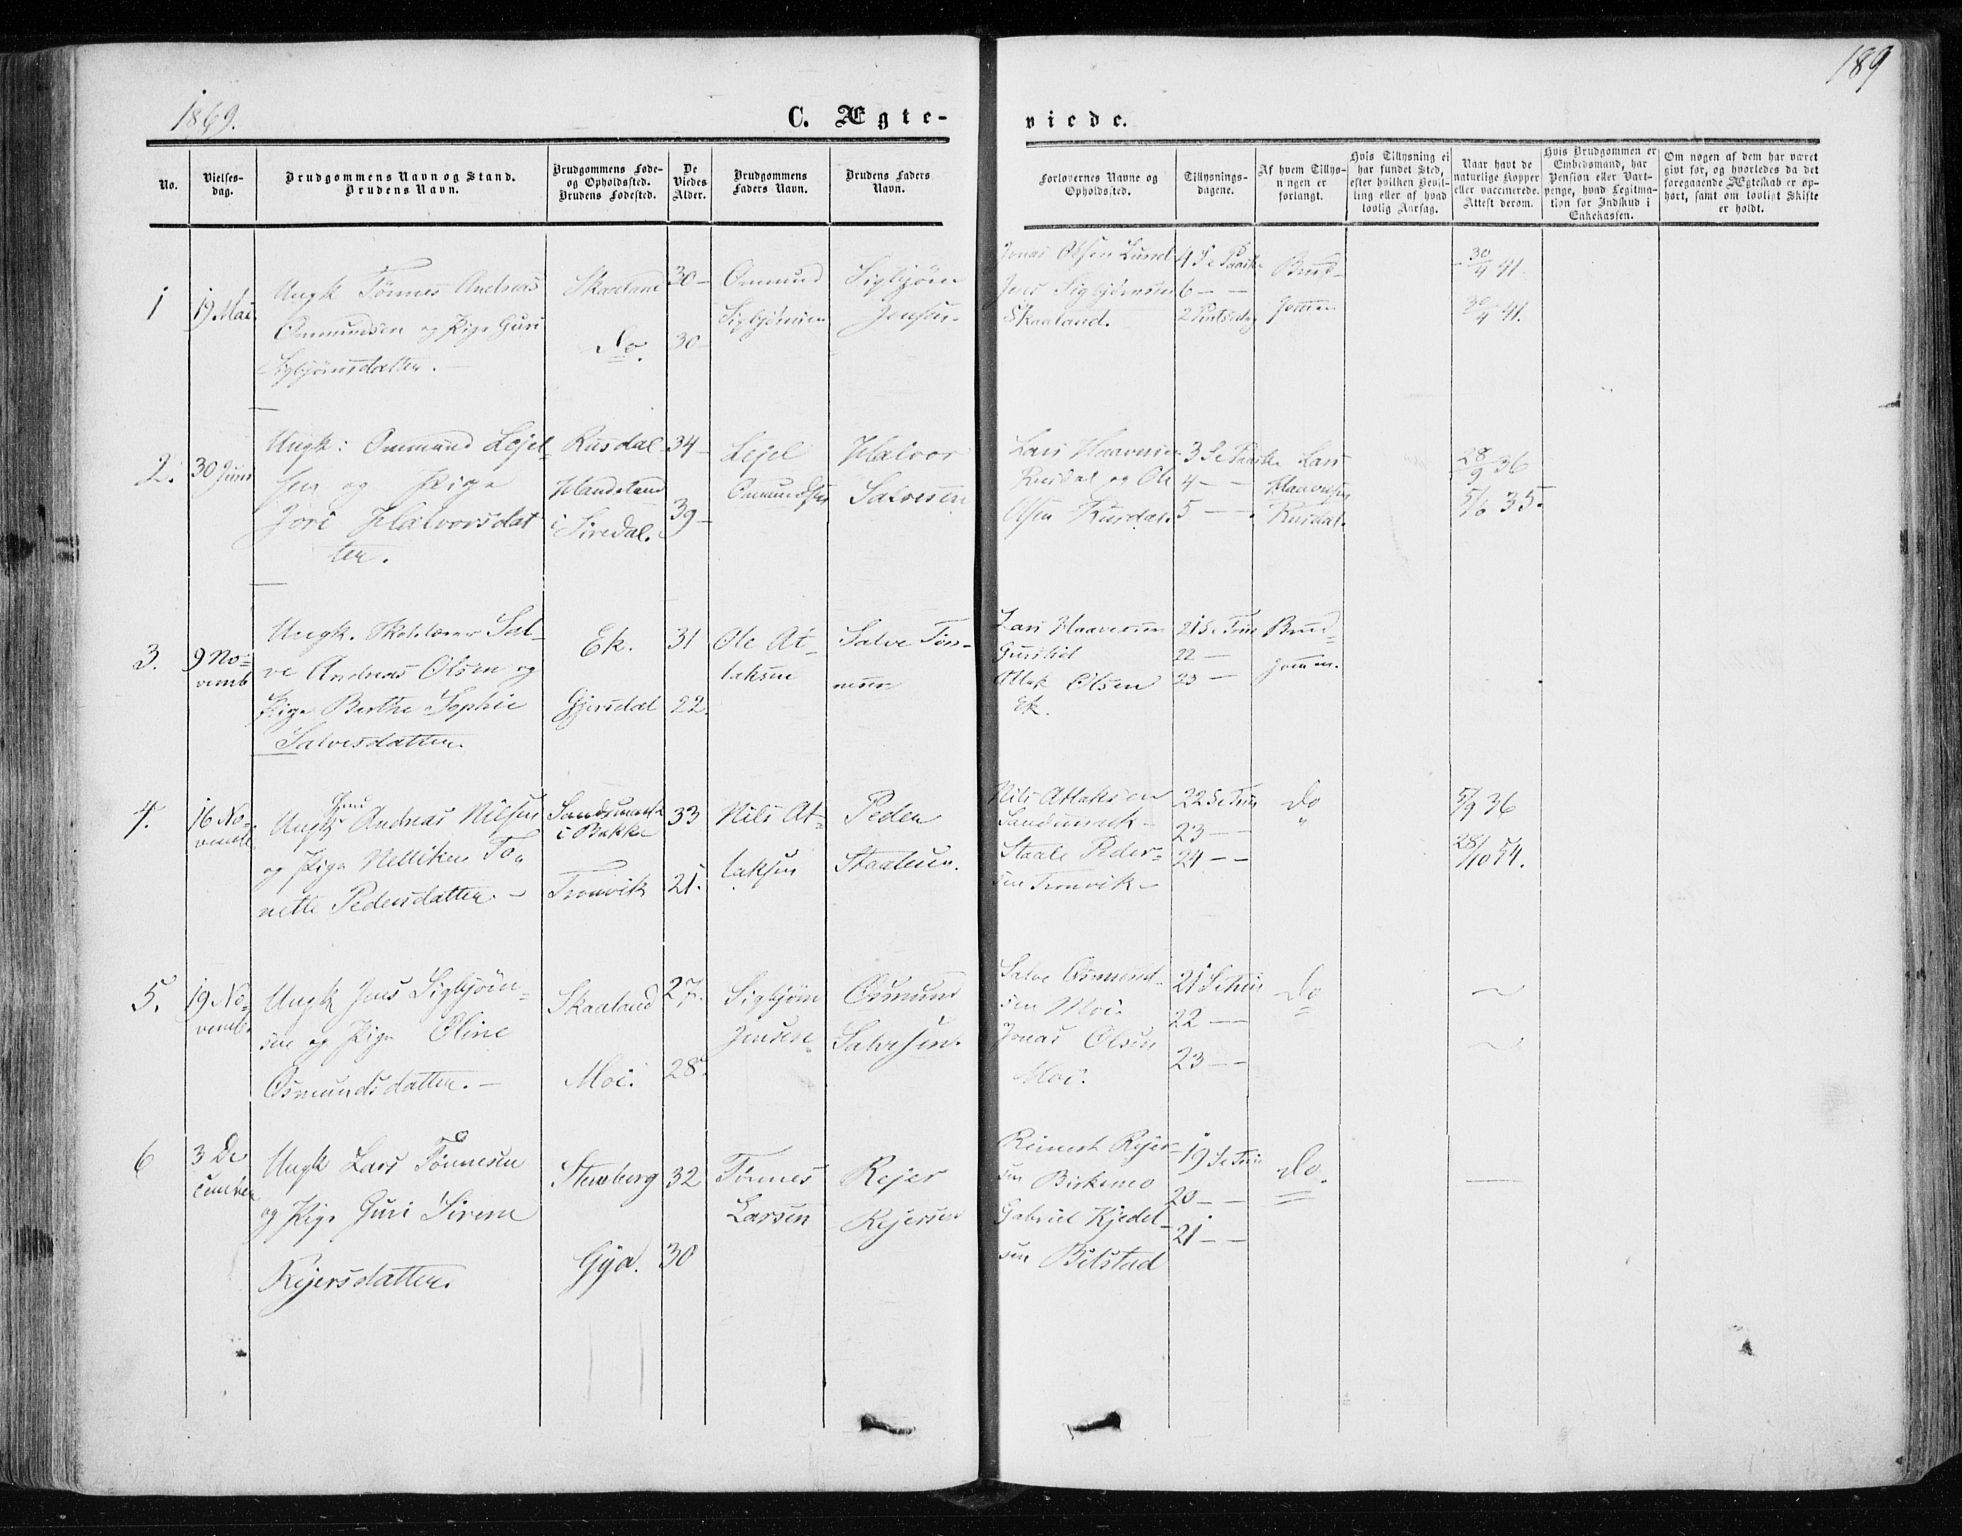 189
1869.
C. Ægte-
viede.
No.
Vielses-
dag.
Brudgommens Navn og Stand.
Brudens Navn.
Brudgommens Føde-
og Opholdssted.
Brudens Fødested.
De
Viedes
Alder.
Brudgommens
Faders Navn.
Brudens Faders
Navn.
Forlovernes Navne og
Opholdssted.
Tillysnings-
dagene.
Af hvem Tillys-
ningen er
forlangt.
Hvis Tillysning ei
har fundet Sted,
efter hvilken Bevil-
ling eller af hvad
lovlig Aarsag.
Naar havt de
naturlige Kopper
eller vaccinerede.
Attest derom.
Hvis Brudgommen er
Embedsmand, har
Pension eller Vart-
penge, hvad Legitima-
tion for Indskud i
Enkekassen.
Om nogen af dem har været
gift før, og hvorledes da det
foregaaende Ægteskab er op-
hørt, samt om lovligt Skifte
er holdt.
1
19 Mai
Ungk Tønnes Andreas
Ommundsen og Pige Guri
Sigbjørnsdatter.
Skaaland
Do.
30
30
Ommund
Sigbjørnsen
Sigbjørn
Jensen
Jonas Olsen Lund
Jens Sigbjørnsen
Skaaland.
4 S e Paaske
6 - -
2 Pintsedag
Brud-
gommen
30/4 41.
30/4 41.
2.
30 Juni
Ungk: Ommund Lejel-
sen og Pige
Jori Halvorsdat
ter.
Rusdal
Handeland
i Siredal.
34
39
Lejel
Ommundsen
Halvor
Salvesen
Lars Haavesen
Rusdal og Ole
Olsen Rusdal.
3 S e Paaske
4 - -
5 - -
Lars
Haavesen
Rusdal.
28/9 36
5/6 35.
3.
9 No-
vemb
Ungk. Skolelærer Sal-
ve Andreas Olsen og
Pige Berthe Sophie
Salvesdatter.
Ek.
Gjersdal
31
22.
Ole At-
laksen
Salve Tøn-
nesen
Lars Haavesen
Atlak Olsen
Ek.
21 S e Trin
22 -
23 -
Brud-
gommen.
4.
16 No-
vembr
Ungk Jens Andreas Nilsen
og Pige Nellikea To-
nette Pedersdatter.
Sandsmark
i Bakke
Tronvik
33
21.
Nils At-
laksen
Peder
Staalesen.
Nils Atlaksen
Sandsmark
Staale Peder-
sen Tronvik
22 S e Trin
23 - -
24 - -
Do
"
5/9 36
28/10 54.
5.
19 No-
vemb.
Ungk Jens Sigbjørn-
sen og Pige Oline
Osmundsdatter.
Skaaland
Moi.
27.
28.
Sigbjørn
Jensen
Osmund
Salvesen.
Salve Osmund-
sen Moi
Jonas Olsen
Moi.
21 S e Trin
22 - -
23 - -
Do
6
3 De
cember
Ungk Lars Tønnesen
og Pige Guri Sirene
Rejersdatter.
Stenberg
Gya.
32
30
Tønnes
Larsen
Rejer
Rejersen
Reinert Rejer-
sen Birkemo
Gabriel Kjedel-
sen Bilstad
19 S e Trin
20 - -
21 - -
Do.